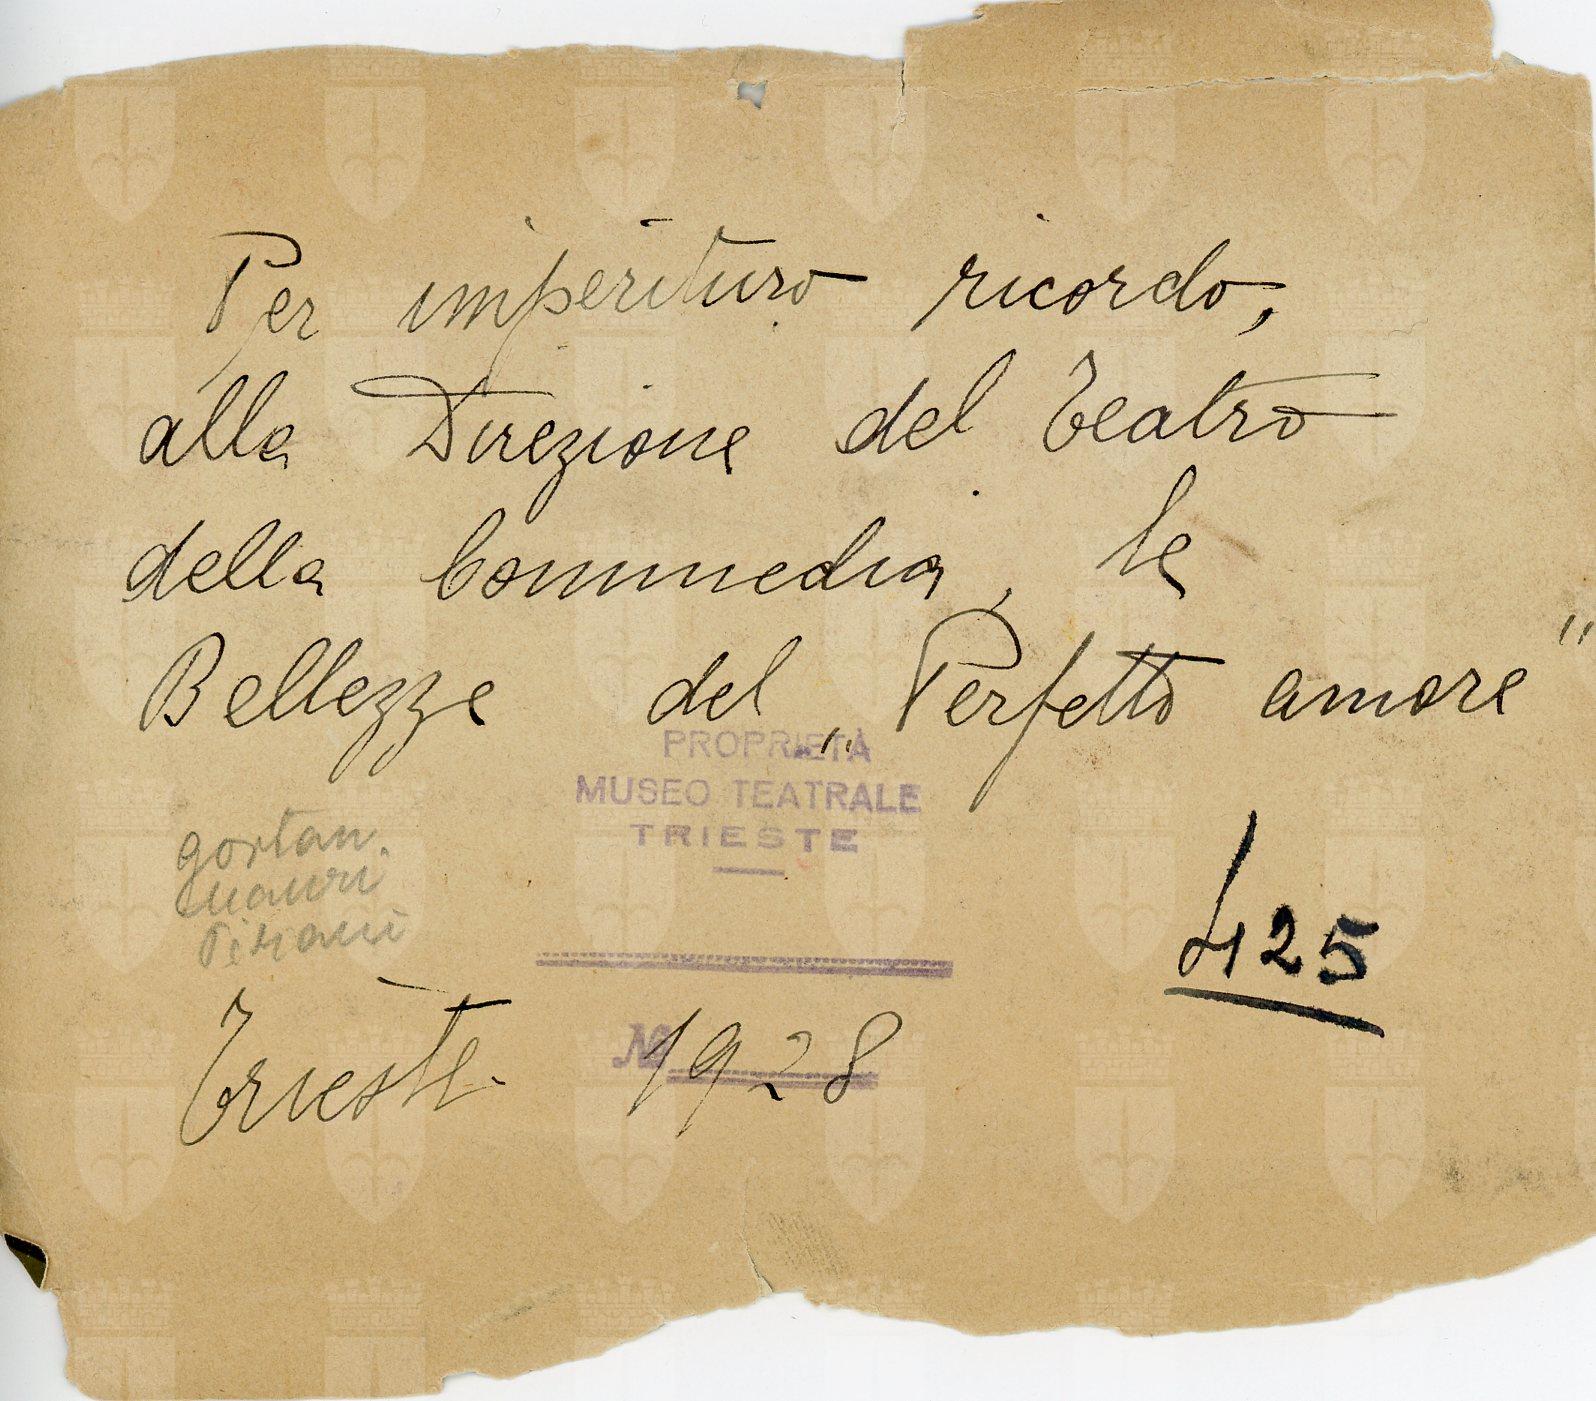 Per imperituro ricordo,
alla Direzione del Teatro
della Commedia, le
Bellezze del „Perfetto amore"
PROPRIETÀ
MUSEO TEATRALE
TRIESTE
gortan
Mauri
Pisani
425
Trieste. 1928
№